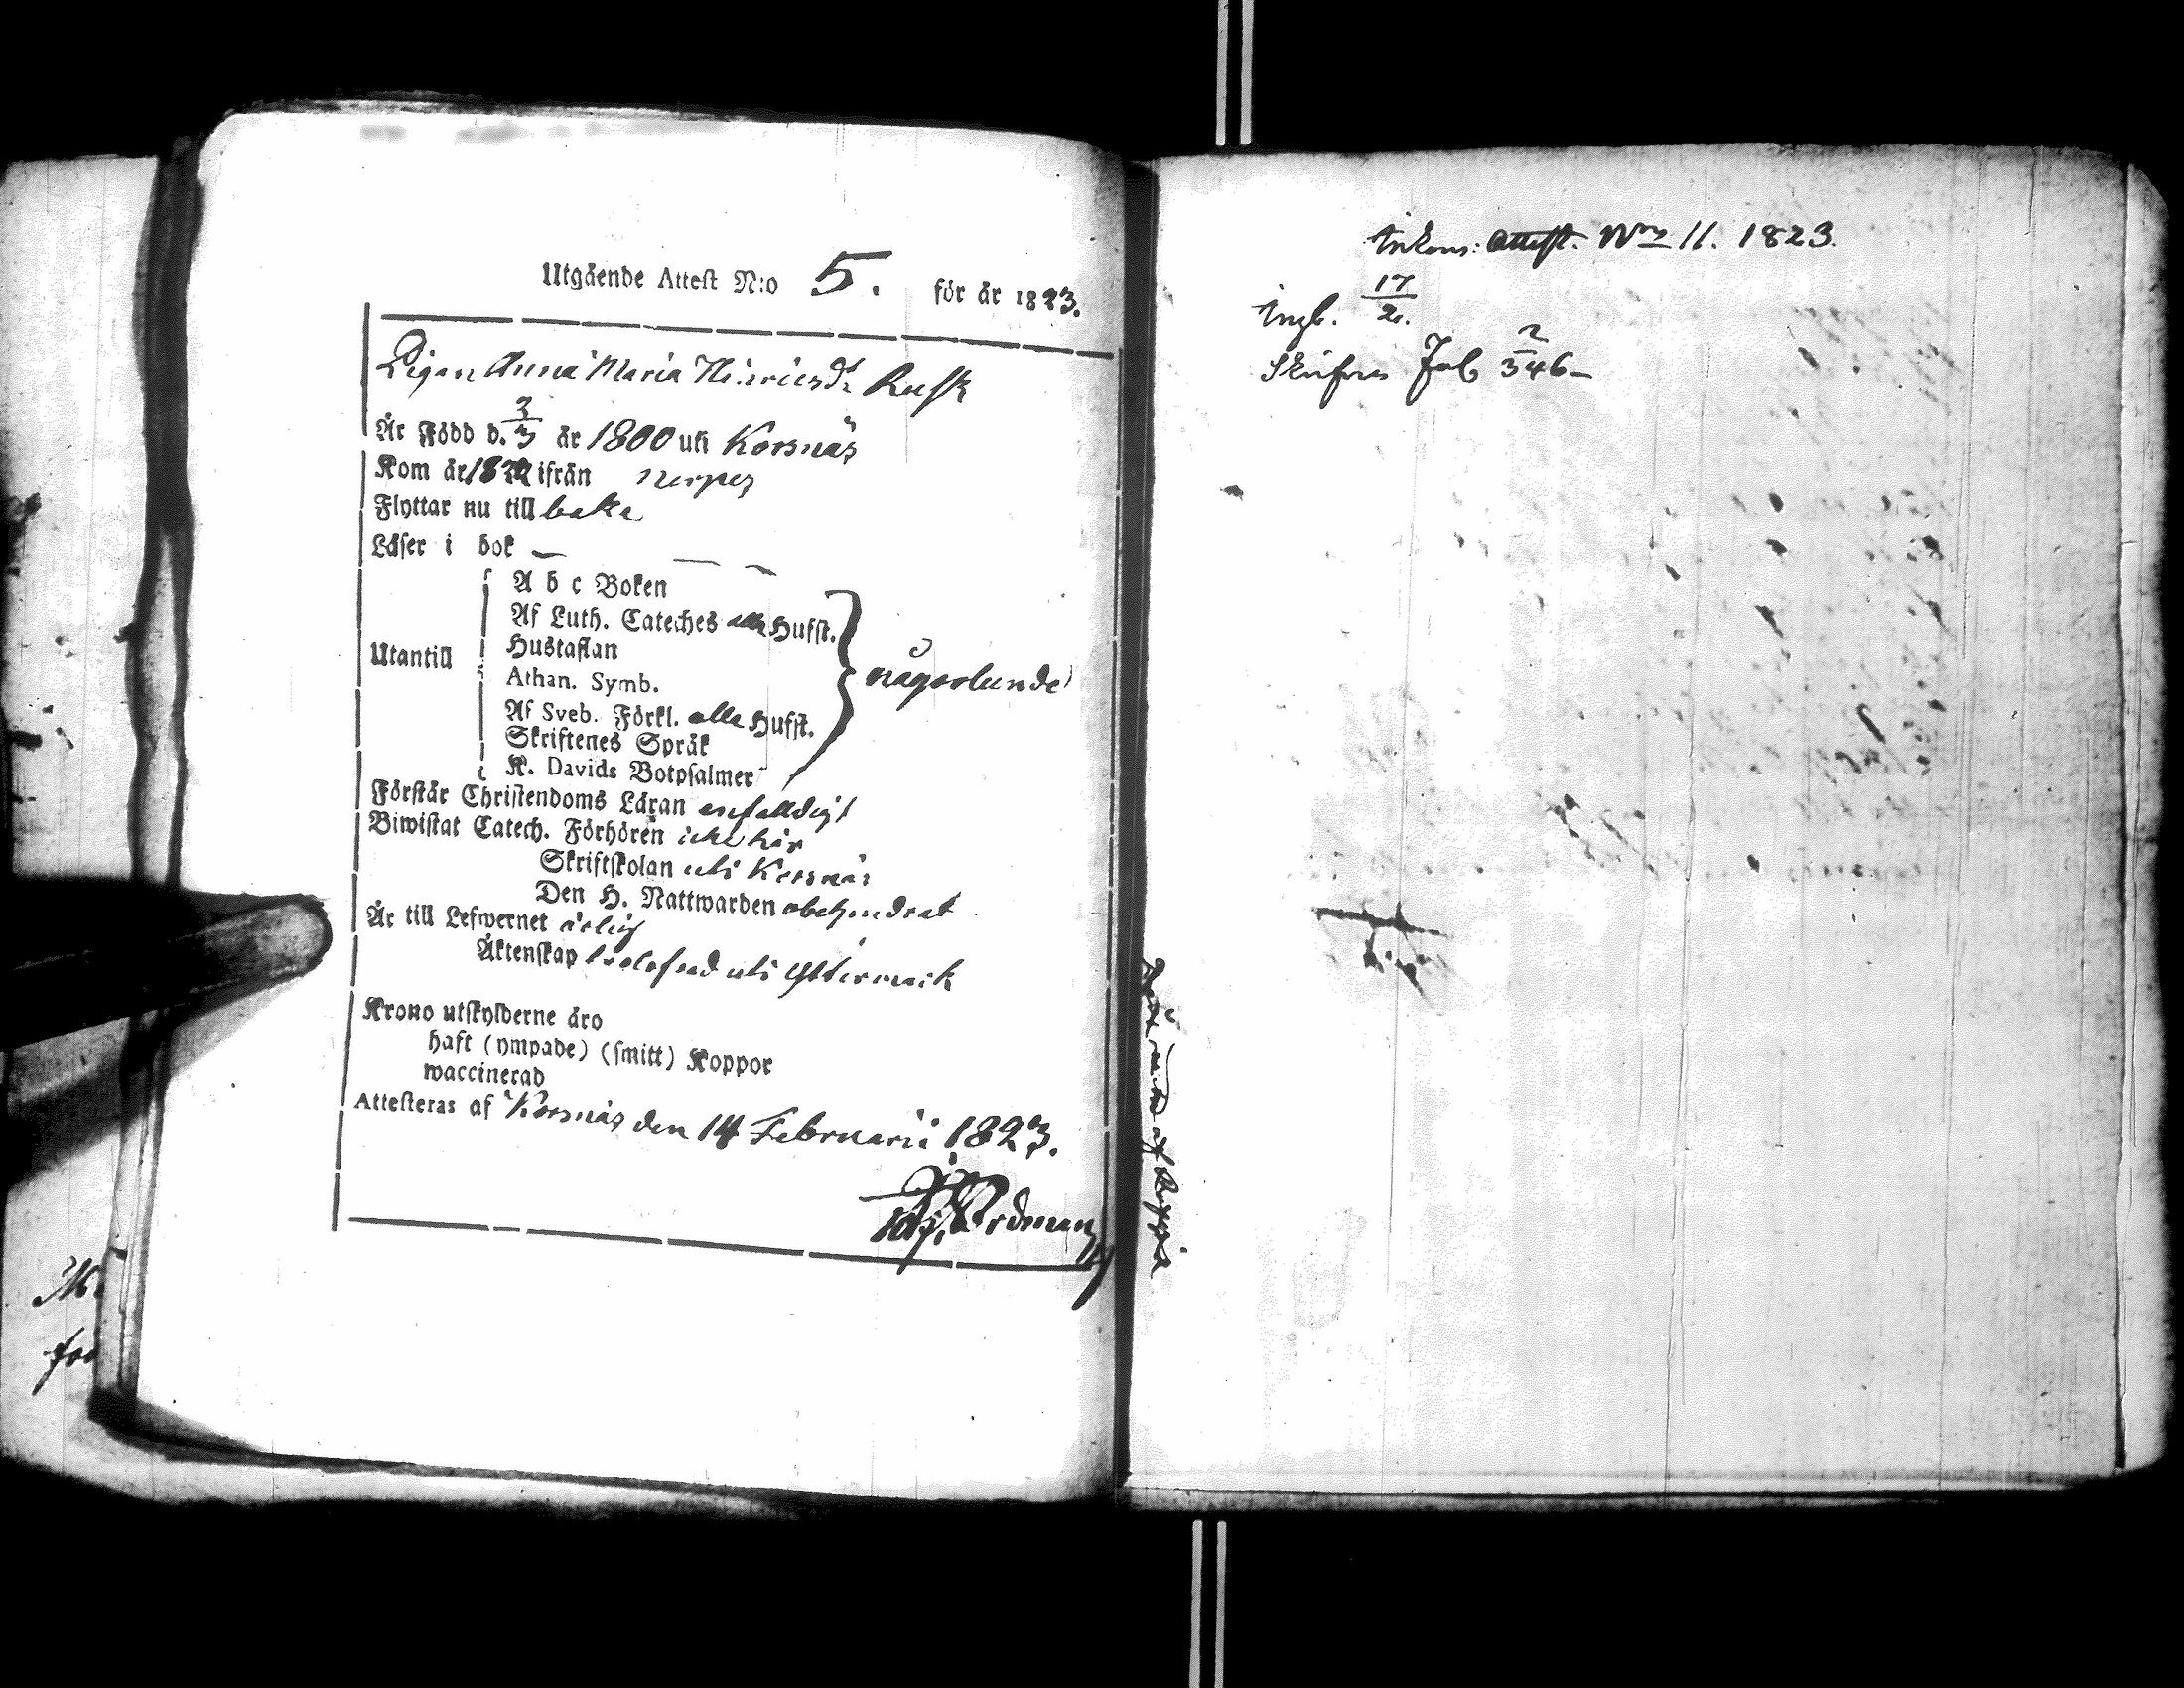 Utgående Attest N:o 5. för år 1823.
Pigan Anna Maria Hinricsdr Rusk
År Född d. 3/3 år 1800 uti Korsnäs
Kom år 1822 ifrån Nerpes
Flyttar nu till baka
Läser i bok —
A b c Boken
Af Luth. Cateches alla Hufst.
Hustaflan
Utantill
Athan. Symb.
någorlunda
Af Sveb. Förkl. alla Hufst.
Skriftenes Språk
K. Davids Botpsalmer
Förstår Christendoms Läran enfalldigt
Biwistat Catech. Förhören icke här
Skriftskolan uti Korsnäs
Den H. Nattwarden obehindrat
Är till Lefwernet ärlig
Äktenskap trolofvad uti Yttermark
Krono utskylderne äro
haft (ympade) (smitt) Koppor
waccinerad
Attesteras af Korsnäs den 14 Februarii 1823.
Nordman
Inkom: attest. Nro 11. 1823.
Ingb. 17/2.
Skrifves Fol 346